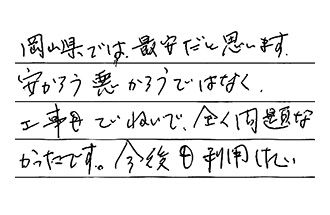 岡山県では、最安だと思います。
安かろう悪かろうではなく、
工事もていねいで、全く問題な
かったです。今後も利用したい